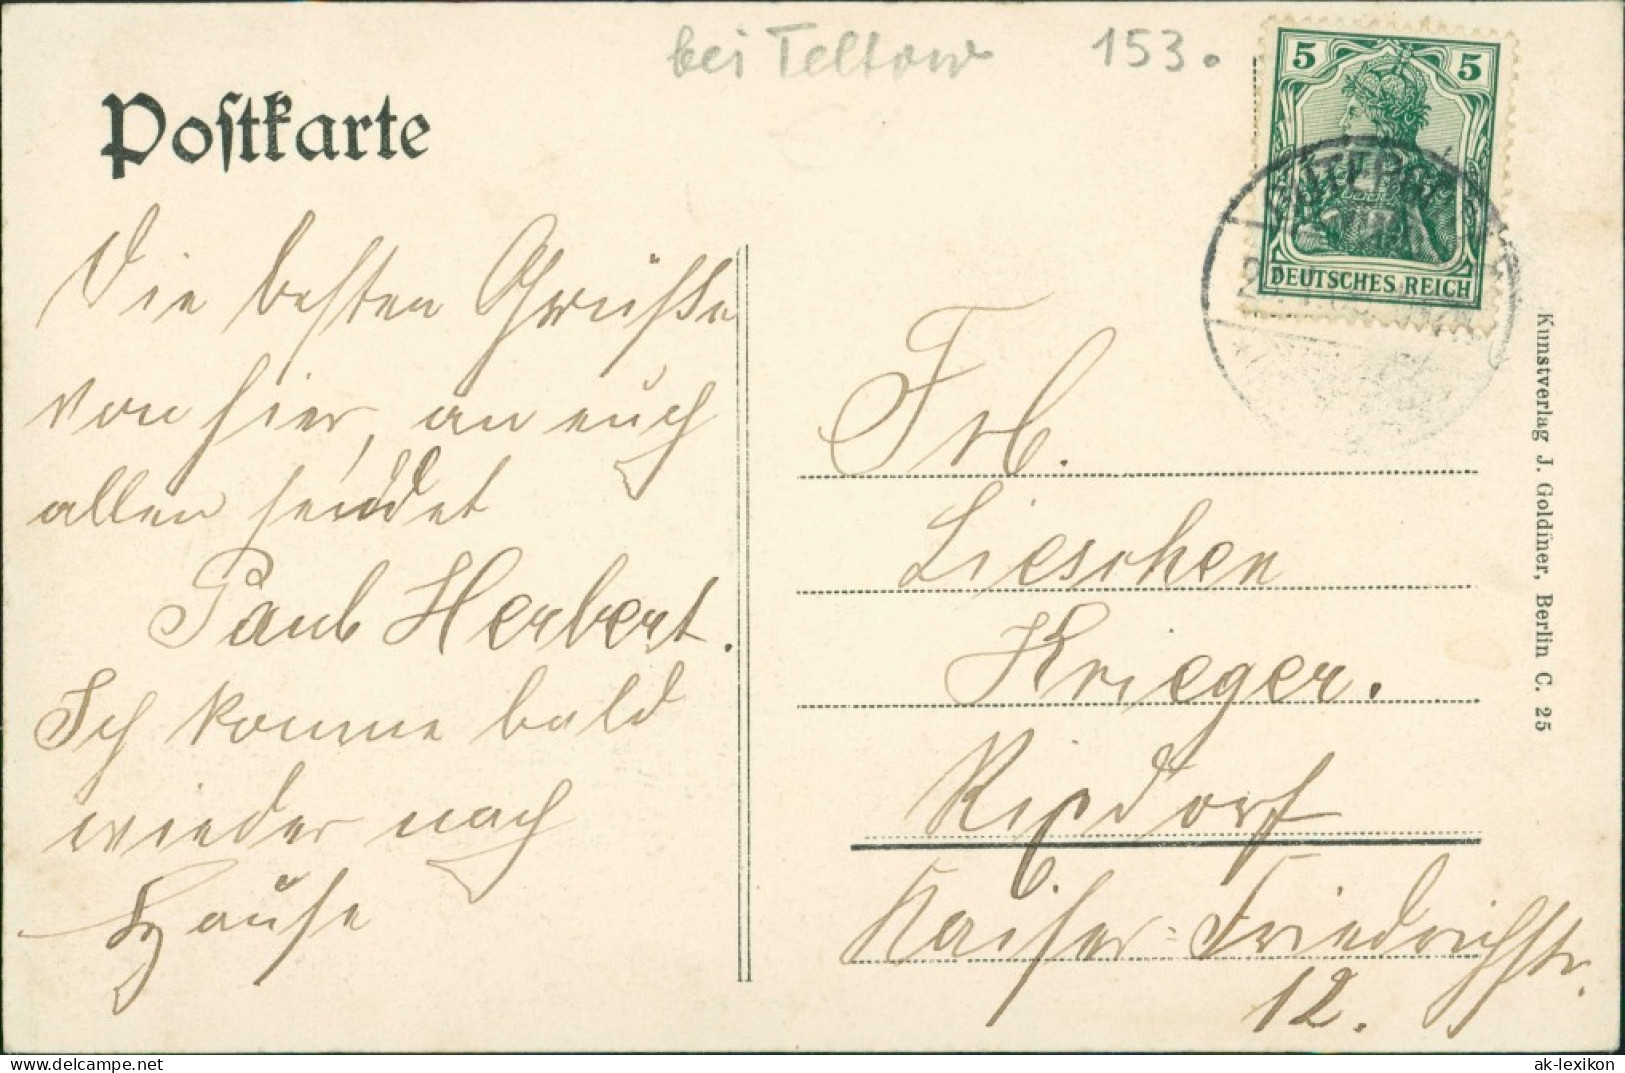 bei Teltow 153.
Postkarte
5 5
DEUTSCHES REICH
Die besten Grüße
von hier, an euch
allen sendet
Paul Herbert.
Ich komme bald
wieder nach
Hause
Frl.
Lieschen
Krieger.
Rixdorf
Kaiser-Friedrichstr.
12.
Kunstverlag J. Goldiner, Berlin C. 25
delcampe.net
ak-lexikon